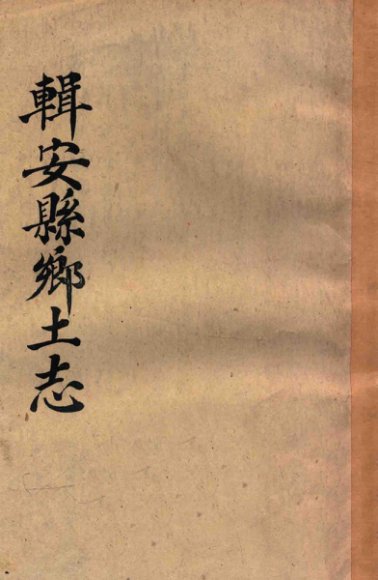 輯安縣鄉土志